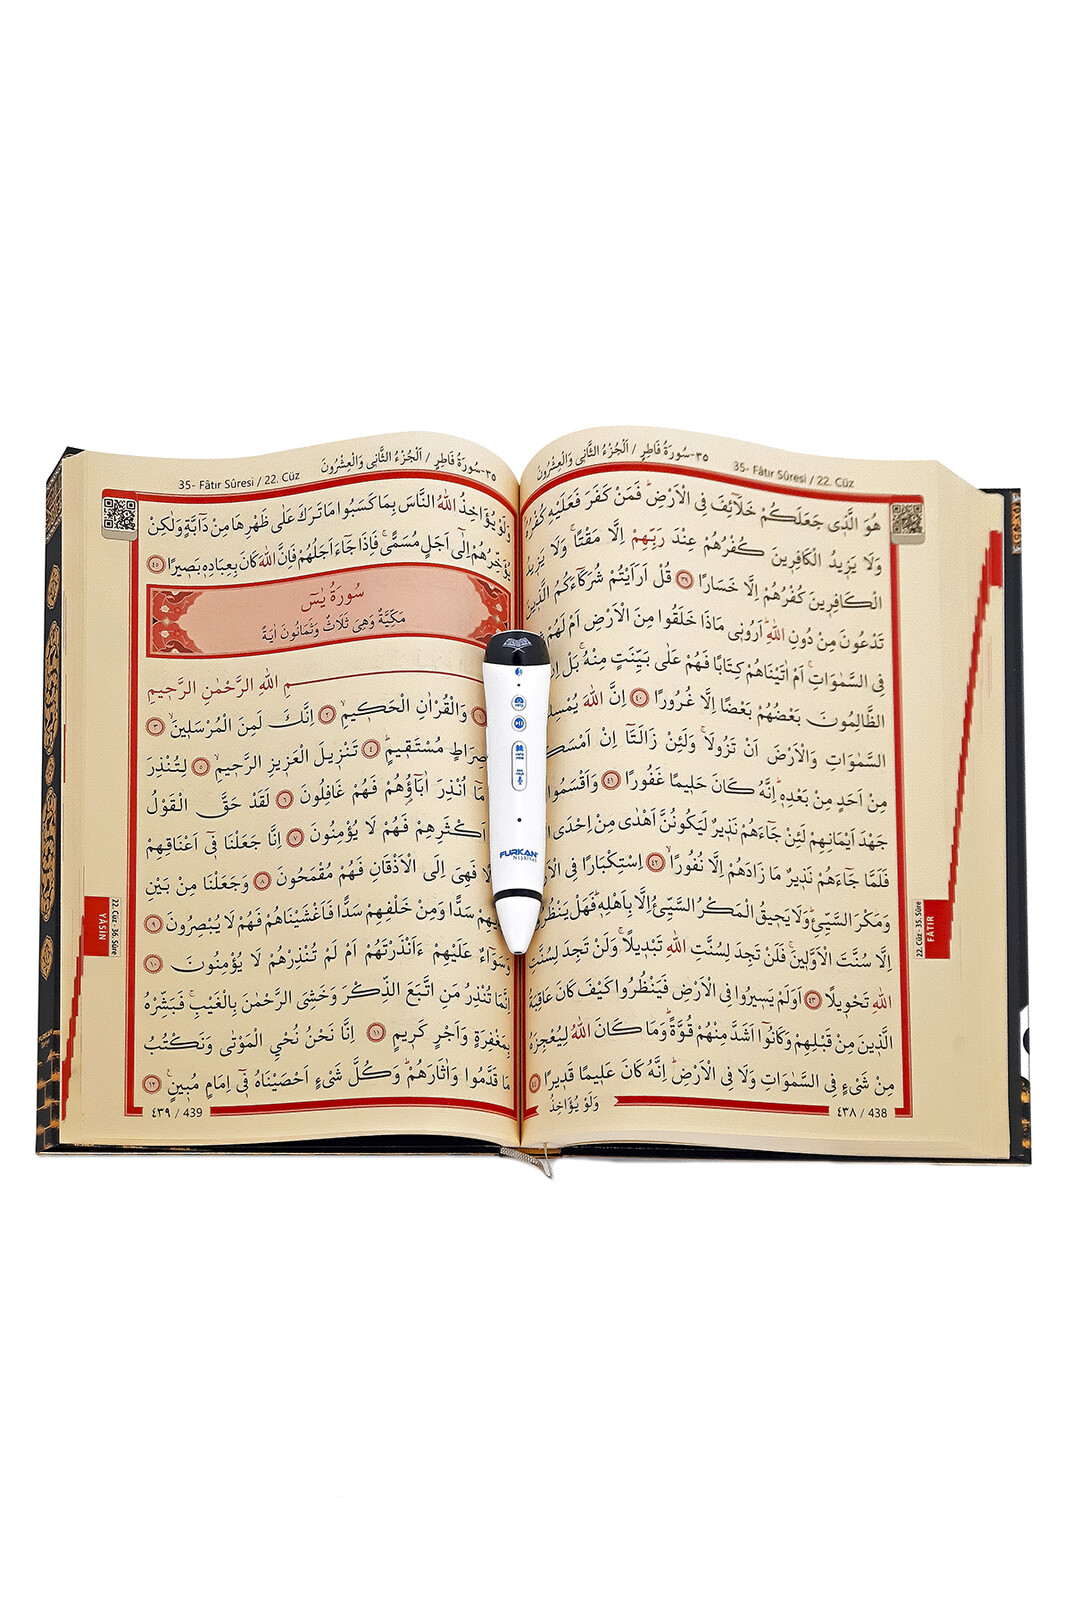 ٣٥-سُورَةُ فَاطِرٍ / اَلْجُزْءُ الثَّانِي وَالْعِشْرُونَ
35- Fâtır Sûresi / 22. Cüz
هُوَ الَّذ۪ي جَعَلَكُمْ خَلَٓائِفَ فِي الْاَرْضِۜ فَمَنْ كَفَرَ فَعَلَيْهِ كُفْرُهُۜ
وَلَا يَز۪يدُ الْكَافِر۪ينَ كُفْرُهُمْ عِنْدَ رَبِّهِمْ اِلَّا مَقْتًاۚ وَلَا يَز۪يدُ
الْكَافِر۪ينَ كُفْرُهُمْ اِلَّا خَسَارًا ٣٩ قُلْ اَرَاَيْتُمْ شُرَكَٓاءَكُمُ الَّذ۪ينَ
تَدْعُونَ مِنْ دُونِ اللّٰهِۜ اَرُون۪ي مَاذَا خَلَقُوا مِنَ الْاَرْضِ اَمْ لَهُمْ
فِي السَّمٰوَاتِۚ اَمْ اٰتَيْنَاهُمْ كِتَابًا فَهُمْ عَلٰى بَيِّنَتٍ مِنْهُۚ بَلْ
الظَّالِمُونَ بَعْضُهُمْ بَعْضًا اِلَّا غُرُورًا ٤٠ اِنَّ اللّٰهَ
السَّمٰوَاتِ وَالْاَرْضَ اَنْ تَزُولَاۚ وَلَئِنْ زَالَتَٓا اِنْ
مِنْ اَحَدٍ مِنْ بَعْدِه۪ۜ اِنَّهُ كَانَ حَل۪يمًا غَفُورًا ٤١ وَاَقْسَمُوا
جَهْدَ اَيْمَانِهِمْ لَئِنْ جَٓاءَهُمْ نَذ۪يرٌ لَيَكُونُنَّ اَهْدٰى مِنْ اِحْدَى
فَلَمَّا جَٓاءَهُمْ نَذ۪يرٌ مَا زَادَهُمْ اِلَّا نُفُورًاۙ ٤٢ اِسْتِكْبَارًا فِي
وَمَكْرَ السَّيِّئِۜ وَلَا يَح۪يقُ الْمَكْرُ السَّيِّئُ اِلَّا بِاَهْلِه۪ۜ فَهَلْ
اِلَّا سُنَّتَ الْاَوَّل۪ينَۚ فَلَنْ تَجِدَ لِسُنَّتِ اللّٰهِ تَبْد۪يلًاۚ وَلَنْ تَجِدَ لِسُنَّتِ
اللّٰهِ تَحْو۪يلًا ٤٣ اَوَلَمْ يَس۪يرُوا فِي الْاَرْضِ فَيَنْظُرُوا كَيْفَ كَانَ عَاقِبَةُ
الَّذ۪ينَ مِنْ قَبْلِهِمْ وَكَانُٓوا اَشَدَّ مِنْهُمْ قُوَّةًۜ وَمَا كَانَ اللّٰهُ لِيُعْجِزَهُ
مِنْ شَيْءٍ فِي السَّمٰوَاتِ وَلَا فِي الْاَرْضِۜ اِنَّهُ كَانَ عَل۪يمًا قَد۪يرًا ٤٤
وَلَوْ يُؤَاخِذُ
٤٣٨ / 438
22. Cüz - 35. Sûre
FÂTIR
٣٥-سُورَةُ فَاطِرٍ / اَلْجُزْءُ الثَّانِي وَالْعِشْرُونَ
35- Fâtır Sûresi / 22. Cüz
وَلَوْ يُؤَاخِذُ اللّٰهُ النَّاسَ بِمَا كَسَبُوا مَا تَرَكَ عَلٰى ظَهْرِهَا مِنْ دَٓابَّةٍ وَلٰكِنْ
يُؤَخِّرُهُمْ اِلٰٓى اَجَلٍ مُسَمًّىۚ فَاِذَا جَٓاءَ اَجَلُهُمْ فَاِنَّ اللّٰهَ كَانَ بِعِبَادِه۪ بَص۪يرًا ٤٥
سُورَةُ يٰسٓ
مَكِّيَّةٌ وَهِيَ ثَلَاثٌ وَثَمَانُونَ اٰيَةً
مِ اللّٰهِ الرَّحْمٰنِ الرَّح۪يمِ
وَالْقُرْاٰنِ الْحَك۪يمِۙ ٢ اِنَّكَ لَمِنَ الْمُرْسَل۪ينَۙ ٣
صِرَاطٍ مُسْتَق۪يمٍۜ ٤ تَنْز۪يلَ الْعَز۪يزِ الرَّح۪يمِۙ ٥ لِتُنْذِرَ
مَٓا اُنْذِرَ اٰبَٓاؤُ۬هُمْ فَهُمْ غَافِلُونَ ٦ لَقَدْ حَقَّ الْقَوْلُ
اَكْثَرِهِمْ فَهُمْ لَا يُؤْمِنُونَ ٧ اِنَّا جَعَلْنَا ف۪ٓي اَعْنَاقِهِمْ
فَهِيَ اِلَى الْاَذْقَانِ فَهُمْ مُقْمَحُونَ ٨ وَجَعَلْنَا مِنْ بَيْنِ
سَدًّا وَمِنْ خَلْفِهِمْ سَدًّا فَاَغْشَيْنَاهُمْ فَهُمْ لَا يُبْصِرُونَ ٩
وَسَوَٓاءٌ عَلَيْهِمْ ءَاَنْذَرْتَهُمْ اَمْ لَمْ تُنْذِرْهُمْ لَا يُؤْمِنُونَ ١٠
اِنَّمَا تُنْذِرُ مَنِ اتَّبَعَ الذِّكْرَ وَخَشِيَ الرَّحْمٰنَ بِالْغَيْبِۚ فَبَشِّرْهُ
بِمَغْفِرَةٍ وَاَجْرٍ كَر۪يمٍ ١١ اِنَّا نَحْنُ نُحْيِ الْمَوْتٰى وَنَكْتُبُ
مَا قَدَّمُوا وَاٰثَارَهُمْۜ وَكُلَّ شَيْءٍ اَحْصَيْنَاهُ ف۪ٓي اِمَامٍ مُب۪ينٍ۟ ١٢
٤٣٩ / 439
22. Cüz - 36. Sûre
YÂSÎN
FURKAN
NEŞRİYAT